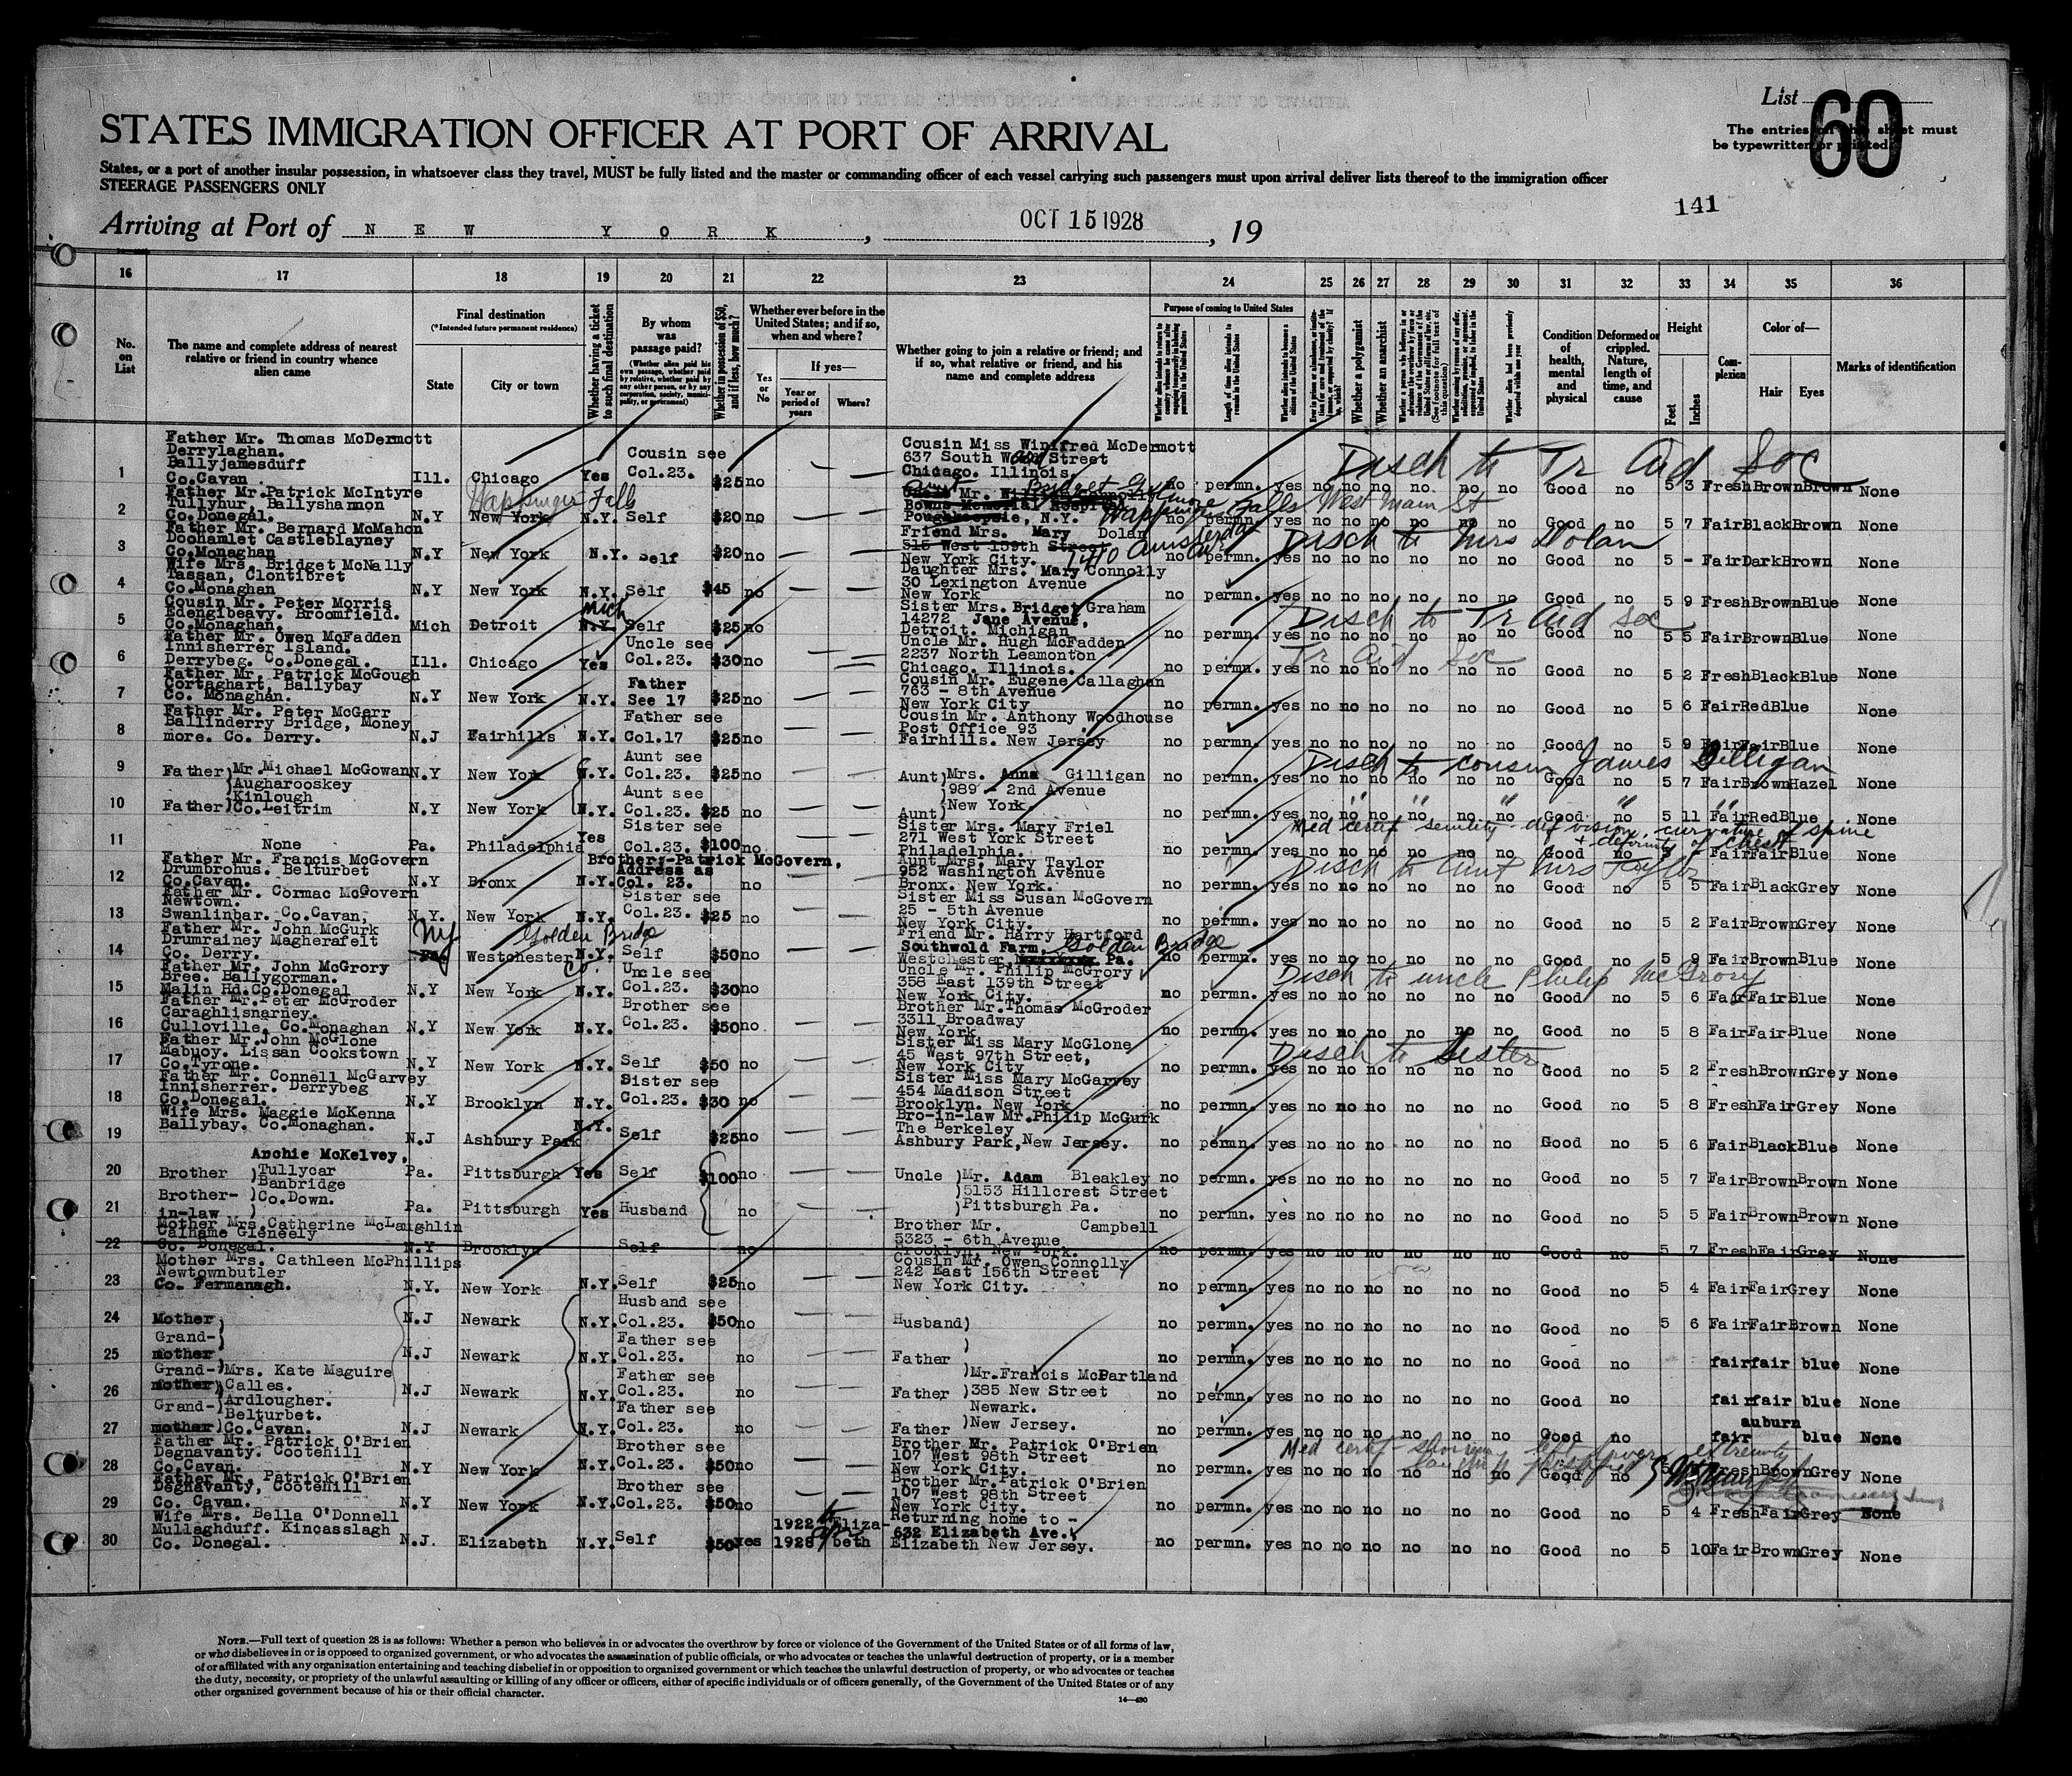 List 60
STATES IMMIGRATION OFFICER AT PORT OF ARRIVAL
The entries on this sheet must
be typewritten or printed.
States, or a port of another insular possession, in whatsoever class they travel, MUST be fully listed and the master or commanding officer of each vessel carrying such passengers must upon arrival deliver lists thereof to the immigration officer
STEERAGE PASSENGERS ONLY
141
Arriving at Port of NEW YORK, OCT 15 1928, 19
16 17 18 19 20 21 22 23 24 25 26 27 28 29 30 31 32 33 34 35 36
No. on List
The name and complete address of nearest relative or friend in country whence alien came
Final destination
(*Intended future permanent residence)
State
City or town
Whether having a ticket to such final destination
By whom was passage paid?
(Whether alien paid his own passage, whether paid by relative, whether paid by any other person, or by any corporation, society, municipality, or government)
Whether in possession of $50, and if less, how much?
Whether ever before in the United States; and if so, when and where?
Yes or No
If yes—
Year or period of years
Where?
Whether going to join a relative or friend; and if so, what relative or friend, and his name and complete address
Purpose of coming to United States
Length of time alien intends to remain in the United States
Whether alien intends to become a citizen of the United States
Whether a polygamist
Whether an anarchist
Condition of health, mental and physical
Deformed or crippled. Nature, length of time, and cause
Height
Feet
Inches
Complexion
Color of—
Hair
Eyes
Marks of identification
Disch to Tr Aid Soc
1 Father Mr. Thomas McDermott Derrylaghan. Ballyjamesduff Co.Cavan. Ill. Chicago Yes Cousin see Col.23. $25 no — — Cousin Miss Winifred McDermott 637 South Street Chicago. Illinois. no permn. yes no no no no no no Good no 5 3 Fresh Brown Brown None
2 Father Mr.Patrick McIntyre Tullyhur, Ballyshannon Co.Donegal. N.Y New York N.Y. Self $20 no — — Aunt Bridget Falls West Main St Bowns Memorial Hospital Poughkeepsie, N.Y. no permn. yes no no no no no no Good no 5 7 Fair Black Brown None
Disch to Mrs Dolan
3 Father Mr. Bernard McMahon Doohamlet Castleblayney Co.Monaghan N.Y New York N.Y. Self $20 no — — Friend Mrs. Mary Dolan 515 West 139th Street 1410 Amsterdam New York City. no permn. yes no no no no no no Good no 5 - Fair Dark Brown None
4 Wife Mrs. Bridget McNally Tassan, Clontibret Co.Monaghan N.Y New York N.Y. Self $45 no — — Daughter Mrs. Mary Connolly 30 Lexington Avenue New York no permn. yes no no no no no no Good no 5 9 Fresh Brown Blue None
Disch to Tr Aid Soc
5 Cousin Mr. Peter Morris Edengibeavy. Broomfield. Co.Monaghan. Mich Detroit Mich N.Y. Self $25 no — — Sister Mrs. Bridget Graham 14272 Jane Avenue, Detroit. Michigan no permn. yes no no no no no no Good no 5 5 Fair Brown Blue None
Tr Aid Soc
6 Father Mr. Owen McFadden Innisherrer Island. Derrybeg. Co.Donegal. Ill. Chicago Yes Uncle see Col.23. $30 no — — Uncle Mr. Hugh McFadden 2237 North Leamonton Chicago. Illinois. no permn. yes no no no no no no Good no 5 2 Fresh Black Blue None
7 Father Mr. Patrick McGough Cortaghart. Ballybay Co. Monaghan. N.Y New York N.Y. Father See 17 $25 no — — Cousin Mr. Eugene Callaghan 763 - 8th Avenue New York City no permn. yes no no no no no no Good no 5 6 Fair Red Blue None
8 Father Mr. Peter McGerr Ballinderry Bridge, Money more. Co. Derry. N.J Fairhills N.Y. Father see Col.17 $25 no — — Cousin Mr. Anthony Woodhouse Post Office 93 Fairhills. New Jersey no permn. yes no no no no no no Good no 5 9 Fair Fair Blue None
Disch to cousin James Gilligan
9 Father) Mr.Michael McGowan Augharooskey N.Y New York N.Y. Aunt see Col.23. $25 no — — Aunt) Mrs. Anna Gilligan 989 - 2nd Avenue no permn. yes no no no no no no Good no 5 7 Fair Brown Hazel None
10 Father) Kinlough Co.Leitrim N.Y New York N.Y. Aunt see Col.23. $25 no — — Aunt) New York. no permn. yes no no no no no no Good no 5 11 Fair Red Blue None
Med certif senility def vision, curvature of spine + deformity of chest
11 None Pa. Philadelphia Yes Sister see Col.23. $100 no — — Sister Mrs. Mary Friel 271 West York Street Philadelphia. no permn. yes no no no no no no Good no Fair Fair Blue None
Disch to Aunt Mrs Taylor
12 Father Mr. Francis McGovern Drumbrohus. Belturbet Co.Cavan. N.Y Bronx N.Y. Brother;-Patrick McGovern, Address as Col. 23. no — — Aunt Mrs. Mary Taylor 952 Washington Avenue Bronx. New York. no permn. yes no no no no no no Good no 5 5 Fair Black Grey None
13 Father Mr. Cormac McGovern Newtown. Swanlinbar. Co.Cavan, N.Y. New York N.Y. Sister see Col.23. $25 no — — Sister Miss Susan McGovern 25 - 5th Avenue New York City. no permn. yes no no no no no no Good no 5 2 Fair Brown Grey None
14 Father Mr. John McGurk Drumrainey Magherafelt Co. Derry. NY Golden Bridge Westchester Co. N.Y. Self $50 no — — Friend Mr. Harry Hartford Southwold Farm, Golden Bridge Westchester, Pa. no permn. yes no no no no no no Good no 5 9 Fair Brown Blue None
Disch to uncle Philip McGrory
15 Father Mr. John McGrory Bree. Ballygorman. Malin Hd.Co.Donegal N.Y New York N.Y. Uncle see Col.23. $30 no — — Uncle Mr. Philip McGrory 358 East 139th Street New York City. no permn. yes no no no no no no Good no 5 6 Fair Fair Blue None
16 Father Mr.Peter McGroder Caraghlisnarney. Culloville. Co.Monaghan N.Y New York N.Y. Brother see Col.23. $50 no — — Brother Mr.Thomas McGroder 3311 Broadway New York no permn. yes no no no no no no Good no 5 8 Fair Fair Blue None
Disch to Sister
17 Father Mr.John McGlone Mabuoy. Lissan Cookstown Co.Tyrone. N.Y New York N.Y. Self $50 no — — Sister Miss Mary McGlone 45 West 97th Street, New York City no permn. yes no no no no no no Good no 5 2 Fresh Brown Grey None
18 Father Mr. Connell McGarvey Innisherrer. Derrybeg Co.Donegal. N.Y Brooklyn N.Y. Sister see Col.23. $30 no — — Sister Miss Mary McGarvey 454 Madison Street Brooklyn. New York no permn. yes no no no no no no Good no 5 8 Fresh Fair Grey None
19 Wife Mrs. Maggie McKenna Ballybay. Co.Monaghan. N.J Ashbury Park N.Y. Self $25 no — — Bro-in-law Mr.Philip McGurk The Berkeley Ashbury Park, New Jersey. no permn. yes no no no no no no Good no 5 6 Fair Black Blue None
20 Archie McKelvey, Brother )Tullycar Banbridge Pa. Pittsburgh Yes Self $100 no — — Uncle )Mr. Adam Bleakley )5153 Hillcrest Street no permn. yes no no no no no no Good no 5 7 Fair Brown Brown None
21 Brother-in-law )Co.Down. Pa. Pittsburgh Yes Husband no — — )Pittsburgh Pa. no permn. yes no no no no no no Good no 5 5 Fair Brown Brown None
22 Mother Mrs.Catherine McLaughlin Calhame Gleneely Co. Donegal. N.Y Brooklyn Self no — — Brother Mr. Campbell 5323 - 6th Avenue Brooklyn, New York. no permn. yes no no no no no no Good no 5 7 Fresh Fair Grey None
23 Mother Mrs. Cathleen McPhillips Newtownbutler Co. Fermanagh. N.Y. New York N.Y. Self $25 no — — Cousin Mr. Owen Connolly 242 East 156th Street New York City. no permn. yes no no no no no no Good no 5 4 Fair Fair Grey None
24 Mother N.J Newark N.Y. Husband see Col.23. $50 no — — Husband) no permn. yes no no no no no no Good no 5 6 Fair Fair Brown None
25 Grand-mother N.J Newark N.Y. Father see Col.23. no — — Father )Mr.Francis McPartland no permn. yes no no no no no no Good no fair fair blue None
26 Grand-mother )Mrs. Kate Maguire Calles. Ardlougher. N.J Newark N.Y. Father see Col.23. no — — Father )385 New Street Newark. no permn. yes no no no no no no Good no fair fair blue None
27 Grand-mother Belturbet. )Co.Cavan. N.J Newark N.Y. Father see Col.23. no — — Father )New Jersey. no permn. yes no no no no no no Good no fair auburn blue None
Med certif left lower extremity
28 Father Mr. Patrick O'Brien Degnavanty. Cootehill Co.Cavan. N.Y New York N.Y. Brother see Col.23. $50 no — — Brother Mr. Patrick O'Brien 107 West 98th Street New York City. no permn. yes no no no no no no Good no 5 Fresh Brown Grey None
29 Father Mr. Patrick O'Brien Degnavanty, Cootehill Co. Cavan. N.Y New York N.Y. Brother see Col.23. $50 no — — Brother Mr.Patrick O'Brien 107 West 98th Street New York City. no permn. yes no no no no no no Good no 5 4 Fresh Fair Grey None
30 Wife Mrs. Bella O'Donnell Mullaghduff. Kincasslagh Co. Donegal. N.J. Elizabeth N.Y. Self $50 yes 1922 to Apr 1928 Elizabeth Returning home to - 632 Elizabeth Ave., Elizabeth New Jersey. no permn. yes no no no no no no Good no 5 10 Fair Brown Grey None
NOTE.—Full text of question 28 is as follows: Whether a person who believes in or advocates the overthrow by force or violence of the Government of the United States or of all forms of law,
or who disbelieves in or is opposed to organized government, or who advocates the assassination of public officials, or who advocates or teaches the unlawful destruction of property, or is a member
of or affiliated with any organization entertaining and teaching disbelief in or opposition to organized government or which teaches the unlawful destruction of property, or who advocates or teaches
the duty, necessity, or propriety of the unlawful assaulting or killing of any officer or officers, either of specific individuals or of officers generally, of the Government of the United States or of any
other organized government because of his or their official character.
14—430